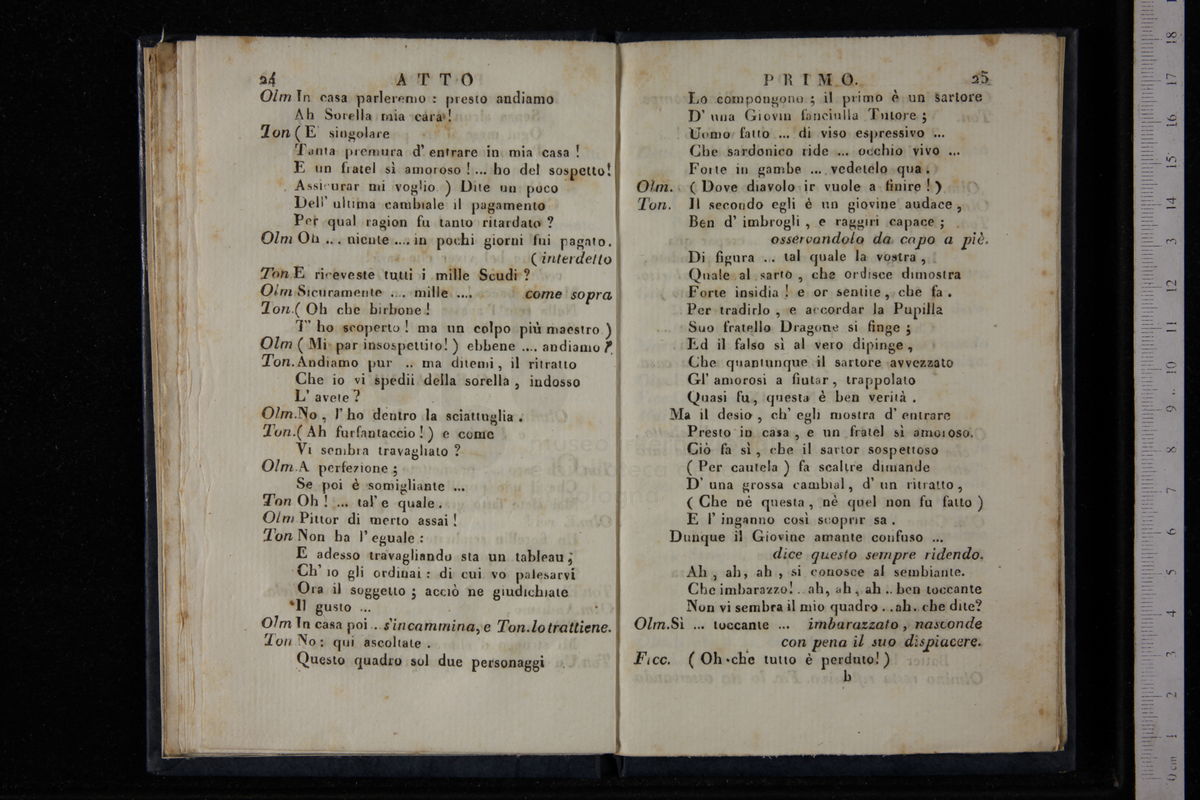 24 ATTO
Olm In casa parleremo : presto andiamo
Ah Sorella mia cara !
Ton ( E' singolare
Tanta premura d' entrare in mia casa !
E un fratel sì amoroso ! ... ho del sospetto!
Assicurar mi voglio ) Dite un poco
Dell' ultima cambiale il pagamento
Per qual ragion fu tanto ritardato ?
Olm Oh ... niente .... in pochi giorni fui pagato.
( interdetto
Ton E riceveste tutti i mille Scudi ?
Olm Sicuramente .... mille .... come sopra
Ton.( Oh che birbone !
T' ho scoperto ! ma un colpo più maestro )
Olm ( Mi par insospettito! ) ebbene .... andiamo ?
Ton. Andiamo pur .. ma ditemi , il ritratto
Che io vi spedii della sorella , indosso
L' avete ?
Olm. No , l' ho dentro la sciattuglia .
Ton.( Ah furfantaccio ! ) e come
Vi sembra travagliato ?
Olm. A perfezione ;
Se poi è somigliante ...
Ton Oh ! ... tal' e quale .
Olm Pittor di merto assai !
Ton Non ha l' eguale :
E adesso travagliando sta un tableau ;
Ch' io gli ordinai : di cui vo palesarvi
Ora il soggetto ; acciò ne giudichiate
Il gusto ...
Olm In casa poi .. s'incammina, e Ton. lo trattiene.
Ton No : qui ascoltate .
Questo quadro sol due personaggi
PRIMO. 25
Lo compongono ; il primo è un sartore
D' una Giovin fanciulla Tutore ;
Uomo fatto ... di viso espressivo ...
Che sardonico ride ... occhio vivo ...
Forte in gambe ... vedetelo qua .
Olm. ( Dove diavolo ir vuole a finire ! )
Ton. Il secondo egli è un giovine audace ,
Ben d' imbrogli , e raggiri capace ;
osservandolo da capo a piè.
Di figura ... tal quale la vostra ,
Quale al sarto , che ordisce dimostra
Forte insidia ! e or sentite , che fa .
Per tradirlo , e accordar la Pupilla
Suo fratello Dragone si finge ;
Ed il falso sì al vero dipinge ,
Che quantunque il sartore avvezzato
Gl' amorosi a fiutar , trappolato
Quasi fu , questa è ben verità .
Ma il desio , ch' egli mostra d' entrare
Presto in casa , e un fratel sì amoroso.
Ciò fa sì , che il sartor sospettoso
( Per cautela ) fa scaltre dimande
D' una grossa cambial , d' un ritratto ,
( Che nè questa , nè quel non fu fatto )
E l' inganno così scoprir sa .
Dunque il Giovine amante confuso ...
dice questo sempre ridendo.
Ah , ah, ah , si conosce al sembiante.
Che imbarazzo! .. ah, ah , ah .. ben toccante
Non vi sembra il mio quadro . . ah. che dite?
Olm. Sì ... toccante ... imbarazzato , nasconde
con pena il suo dispiacere.
Ficc. ( Oh che tutto è perduto! )
b